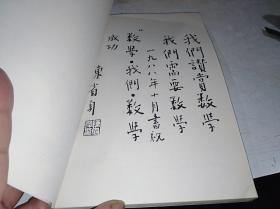 我們讚賞数學
我們需要数學
一九八八年十月書祝
"数學·我們·数學"
成功
陳省身